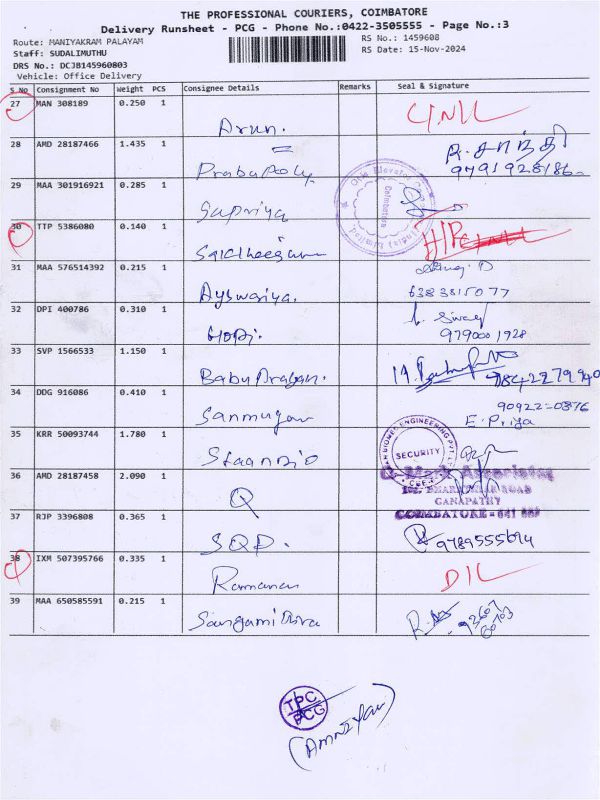 THE PROFESSIONAL COURIERS, COIMBATORE
Delivery Runsheet - PCG - Phone No.:0422-3505555 - Page No.:3
Route: MANIYAKRAM PALAYAM
RS No.: 1459608
Staff: SUDALIMUTHU
RS Date: 15-Nov-2024
DRS No.: DCJB145960803
Vehicle: Office Delivery
S No Consignment No Weight PCS Consignee Details Remarks Seal & Signature
27 MAN 308189 0.250 1 Arun.
28 AMD 28187466 1.435 1 R. சாந்தி
29 MAA 301916921 0.285 1 Supriya
30 TTP 5386080 0.140 1
31 MAA 576514392 0.215 1 Ayswariya. 6383815077
32 DPI 400786 0.310 1 Gopi. 9790001928
33 SVP 1566533 1.150 1
34 DDG 916086 0.410 1 Sanmugam E. Priya
35 KRR 50093744 1.780 1 SECURITY
36 AMD 28187458 2.090 1 Q Mark Associates
GANAPATHY
COIMBATORE - 641
37 RJP 3396808 0.365 1 SQD.
38 IXM 507395766 0.335 1 Ramanan DIL
39 MAA 650585591 0.215 1 Sangamithra
TPC
PCG